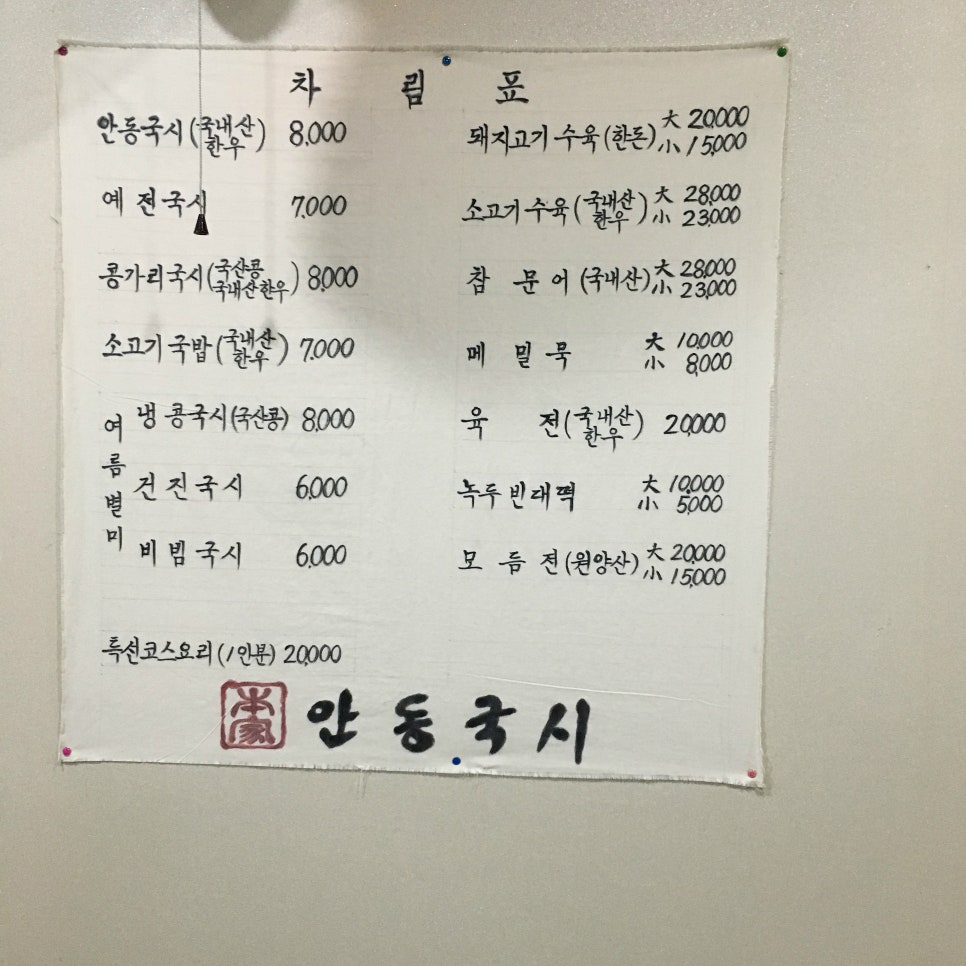 차 림 표
안동국시(국내산 한우) 8,000
예전국시 7,000
콩가리국시(국산콩 국내산한우) 8,000
소고기국밥(국내산 한우) 7,000
여름별미
냉콩국시(국산콩) 8,000
건진국시 6,000
비빔국시 6,000
특선코스요리(1인분) 20,000
돼지고기수육(한돈) 大 20,000
小 15,000
소고기수육(국내산 한우) 大 28,000
小 23,000
참문어(국내산) 大 28,000
小 23,000
메밀묵 大 10,000
小 8,000
육전(국내산 한우) 20,000
녹두빈대떡 大 10,000
小 5,000
모듬전(원양산) 大 20,000
小 15,000
本家 안동국시